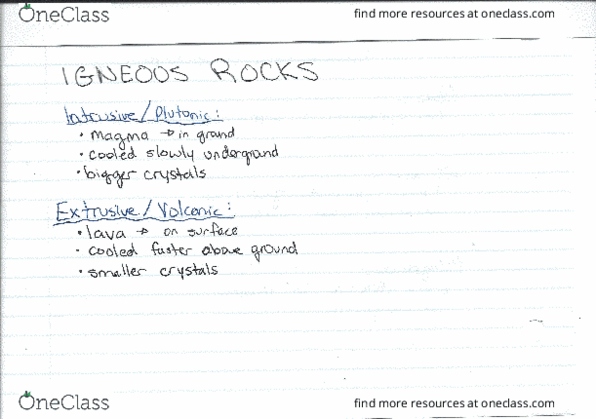 OneClass
find more resources at oneclass.com
IGNEOUS ROCKS
Intrusive/Plutonic:
• magma → in ground
• cooled slowly underground
• bigger crystals
Extrusive/Volcanic:
• lava → on surface
• cooled faster above ground
• smaller crystals
OneClass
find more resources at oneclass.com